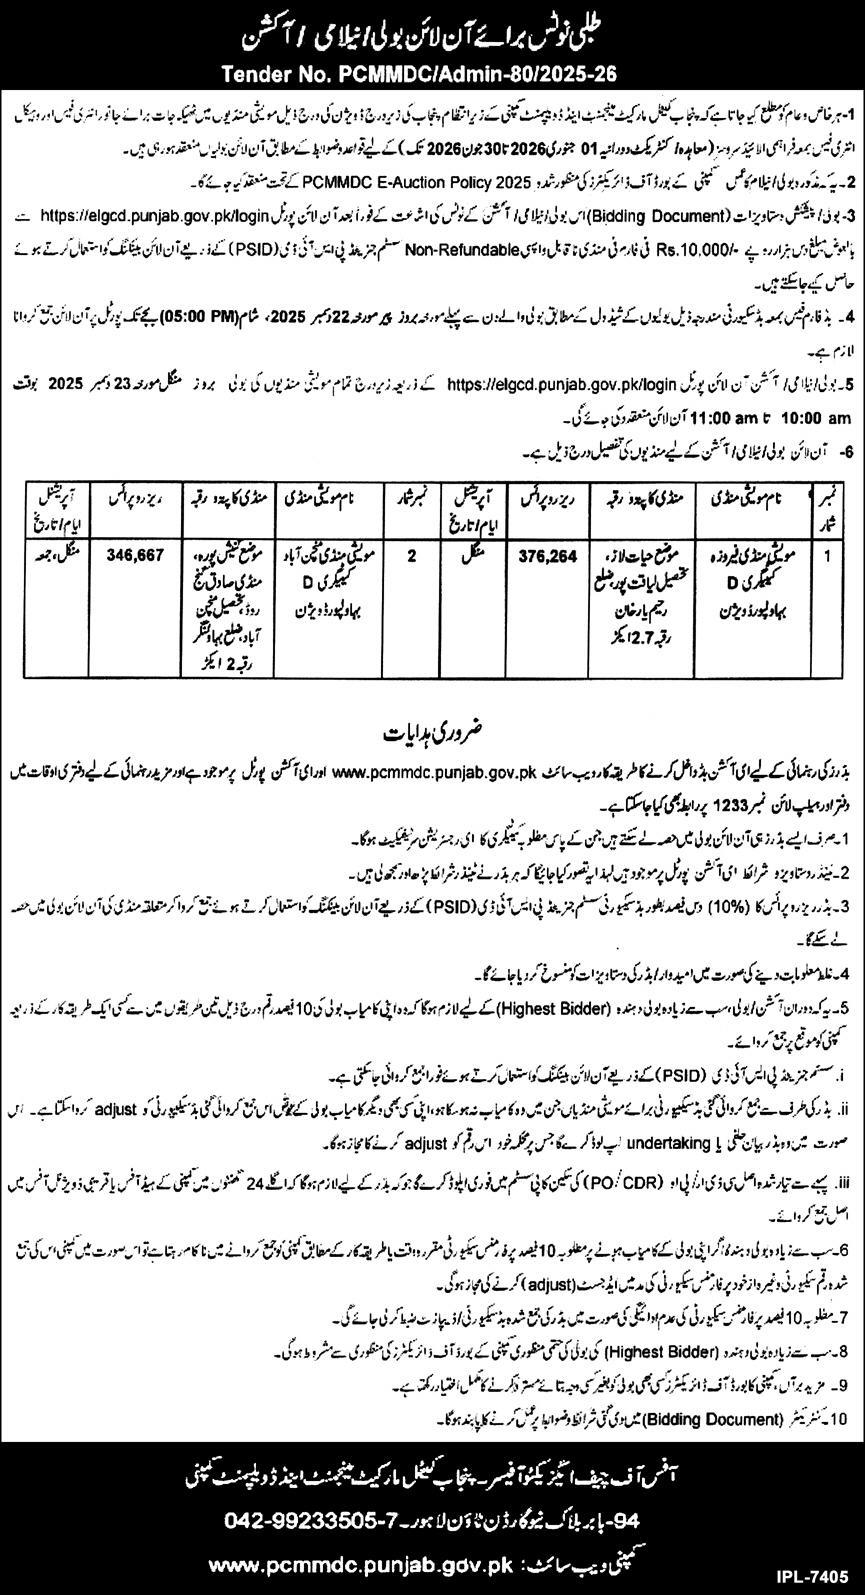 طلبی نوٹس برائے آن لائن بولی/نیلامی /آکشن
Tender No. PCMMDC/Admin-80/2025-26
1- ہر خاص و عام کو مطلع کیا جاتا ہے کہ پنجاب کیٹل مارکیٹ مینجمنٹ اینڈ ڈویلپمنٹ کمپنی کے زیر انتظام پنجاب کی زیر درج ڈویژن کی درج ذیل مویشی منڈیوں میں ٹھیکہ جات برائے جانور انٹری فیس اور وہیکل
انٹری فیس بمعہ فراہمی الائیڈ سروسز (معاہدہ/کنٹریکٹ دورانیہ 01 جنوری 2026 تا 30 جون 2026 تک) کے لیے قواعد و ضوابط کے مطابق آن لائن بولیاں منعقد ہو رہی ہیں۔
2- یہ کہ مذکورہ بولی/نیلام کا عمل کمپنی کے بورڈ آف ڈائریکٹرز کی منظور شدہ PCMMDC E-Auction Policy 2025 کے تحت منعقد کیا جائے گا۔
3- بولی/پیشکش دستاویزات (Bidding Document) اس بولی/نیلامی/آکشن کے نوٹس کی اشاعت کے فوراً بعد آن لائن پورٹل https://elgcd.punjab.gov.pk/login سے
بالعوض مبلغ دس ہزار روپے Rs.10,000/- فی فارم فی منڈی ناقابل واپسی Non-Refundable سسٹم جنریٹڈ پی ایس آئی ڈی (PSID) کے ذریعے آن لائن بینکنگ کو استعمال کرتے ہوئے
حاصل کیے جا سکتے ہیں۔
4- بڈ فارم فیس بمعہ بڈ سکیورٹی مندرجہ ذیل بولیوں کے شیڈول کے مطابق بولی والے دن سے پہلے مورخہ بروز پیر مورخہ 22 دسمبر 2025، شام (05:00 PM) بجے تک پورٹل پر آن لائن جمع کروانا
لازم ہے۔
5- بولی/نیلامی/آکشن آن لائن پورٹل https://elgcd.punjab.gov.pk/login کے ذریعہ زیر درج تمام مویشی منڈیوں کی بولی بروز منگل مورخہ 23 دسمبر 2025 بوقت
10:00 am تا 11:00 am آن لائن منعقد کی جائے گی۔
6- آن لائن بولی/نیلامی/آکشن کے لیے منڈیوں کی تفصیل درج ذیل ہے۔
نمبر شمار | نام مویشی منڈی | منڈی کا پتہ و رقبہ | ریزرو پرائس | آپریشنل ایام/تاریخ | نمبر شمار | نام مویشی منڈی | منڈی کا پتہ و رقبہ | ریزرو پرائس | آپریشنل ایام/تاریخ
1 | مویشی منڈی فیروزہ کیٹیگری D بہاولپور ڈویژن | موضع حیات لاڑ، تحصیل لیاقت پور، ضلع رحیم یار خان رقبہ 2.7 ایکڑ | 376,264 | منگل | 2 | مویشی منڈی منچن آباد کیٹیگری D بہاولپور ڈویژن | موضع گنیش پورہ، منڈی صادق گنج روڈ، تحصیل منچن آباد، ضلع بہاولنگر رقبہ 2 ایکڑ | 346,667 | منگل، جمعہ
ضروری ہدایات
بڈرز کی رہنمائی کے لیے ای آکشن بڈ داخل کرنے کا طریقہ کار ویب سائٹ www.pcmmdc.punjab.gov.pk اور ای آکشن پورٹل پر موجود ہے اور مزید رہنمائی کے لیے دفتری اوقات میں
دفتر اور ہیلپ لائن نمبر 1233 پر رابطہ بھی کیا جا سکتا ہے۔
1- صرف ایسے بڈرز ہی آن لائن بولی میں حصہ لے سکتے ہیں جن کے پاس مطلوبہ کیٹیگری کا ای رجسٹریشن سرٹیفکیٹ ہوگا۔
2- ٹینڈر دستاویز و شرائط ای آکشن پورٹل پر موجود ہیں لہذا یہ تصور کیا جائیگا کہ ہر بڈر نے ٹینڈر شرائط پڑھ اور سمجھ لی ہیں۔
3- بڈر ریزرو پرائس کا (10%) دس فیصد بطور بڈ سیکیورٹی سسٹم جنریٹڈ پی ایس آئی ڈی (PSID) کے ذریعے آن لائن بینکنگ کو استعمال کرتے ہوئے جمع کروا کر متعلقہ منڈی کی آن لائن بولی میں حصہ
لے سکے گا۔
4- غلط معلومات دینے کی صورت میں امیدوار/بڈر کی دستاویزات کو منسوخ کر دیا جائے گا۔
5- یہ کہ دوران آکشن/بولی، سب سے زیادہ بولی دہندہ (Highest Bidder) کے لیے لازم ہوگا کہ وہ اپنی کامیاب بولی کی 10 فیصد رقم درج ذیل تین طریقوں میں سے کسی ایک طریقہ کار کے ذریعہ
کمپنی کو موقع پر جمع کروائے۔
i. سسٹم جنریٹڈ پی ایس آئی ڈی (PSID) کے ذریعے آن لائن بینکنگ کو استعمال کرتے ہوئے فوراً جمع کروائی جا سکتی ہے۔
ii. بڈر کی طرف سے جمع کروائی گئی بڈ سیکیورٹی برائے مویشی منڈیاں جن میں وہ کامیاب نہ ہو سکا ہو، اپنی کسی بھی دیگر کامیاب بولی کے عوض اس جمع کروائی گئی بڈ سیکیورٹی کو adjust کروا سکتا ہے۔ اس
صورت میں وہ بڈر بیان حلفی یا undertaking اپ لوڈ کرے گا جس پر محکمہ خود اس رقم کو adjust کرنے کا مجاز ہوگا۔
iii. پہلے سے تیار شدہ اصل سی ڈی آر/پی او (PO/CDR) کی سکین کاپی سسٹم میں فوری اپلوڈ کرے گا جو کہ بڈر کے لیے لازم ہوگا کہ اگلے 24 گھنٹوں میں کمپنی کے ہیڈ آفس یا قریبی ڈویژنل آفس میں
اصل جمع کروائے۔
6- سب سے زیادہ بولی دہندہ اگر اپنی بولی کے کامیاب ہونے پر مطلوبہ 10 فیصد پرفارمنس سیکیورٹی مقررہ وقت یا طریقہ کار کے مطابق کمپنی کو جمع کروانے میں ناکام رہتا ہے تو اس صورت میں کمپنی اس کی جمع
شدہ رقم سیکیورٹی وغیرہ از خود پرفارمنس سیکیورٹی کی مد میں ایڈجسٹ (adjust) کرنے کی مجاز ہوگی۔
7- مطلوبہ 10 فیصد پرفارمنس سیکیورٹی کی عدم ادائیگی کی صورت میں بڈر کی جمع شدہ بڈ سیکیورٹی/ڈیپازٹ ضبط کر لی جائے گی۔
8- سب سے زیادہ بولی دہندہ (Highest Bidder) کی بولی کی حتمی منظوری کمپنی کے بورڈ آف ڈائریکٹرز کی منظوری سے مشروط ہوگی۔
9- مزید برآں، کمپنی کا بورڈ آف ڈائریکٹرز کسی بھی بولی کو بغیر کسی وجہ بتائے مسترد کرنے کا مکمل اختیار رکھتا ہے۔
10- کنٹریکٹر (Bidding Document) میں دی گئی شرائط و ضوابط پر عمل کرنے کا پابند ہوگا۔
آفس آف چیف ایگزیکٹو آفیسر۔ پنجاب کیٹل مارکیٹ مینجمنٹ اینڈ ڈویلپمنٹ کمپنی
94-بابر بلاک نیو گارڈن ٹاؤن لاہور۔ 042-99233505-7
کمپنی ویب سائٹ: www.pcmmdc.punjab.gov.pk
IPL-7405